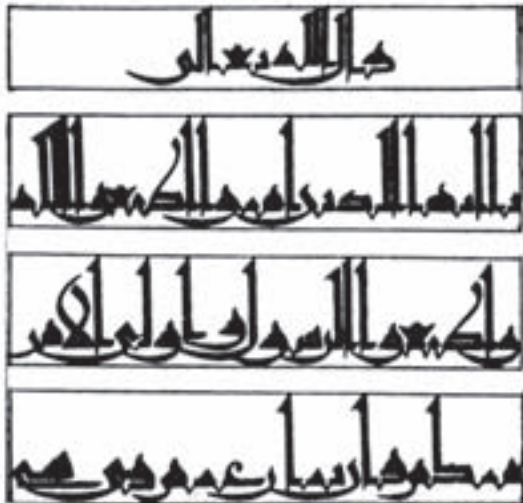 قال الله تعالى
يايها الذين امنوا اطيعوا الله
واطيعوا الرسول واولى الامر
منكم فان تنازعتم فى شى